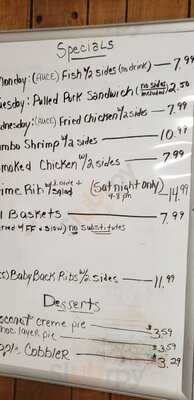 Specials
Monday: (AUCE) Fish w/2 sides (no drink) — 7.99
uesday: Pulled Pork Sandwich (no sides included) 2.50
dnesday: (AUCE) Fried Chicken w/2 sides — 7.99
umbo Shrimp w/2 sides — 10.99
moked Chicken w/2 sides — 7.99
ime Rib w/2 sides + salad (Sat night only) 4-8 pm — 14.99
Baskets — 7.99
w/ FF + slaw) no substitutes
Baby Back Ribs w/2 sides — 11.99
Desserts
oconut creme pie — $3.59
hoc. layer pie — $3.59
Cobbler — $3.29